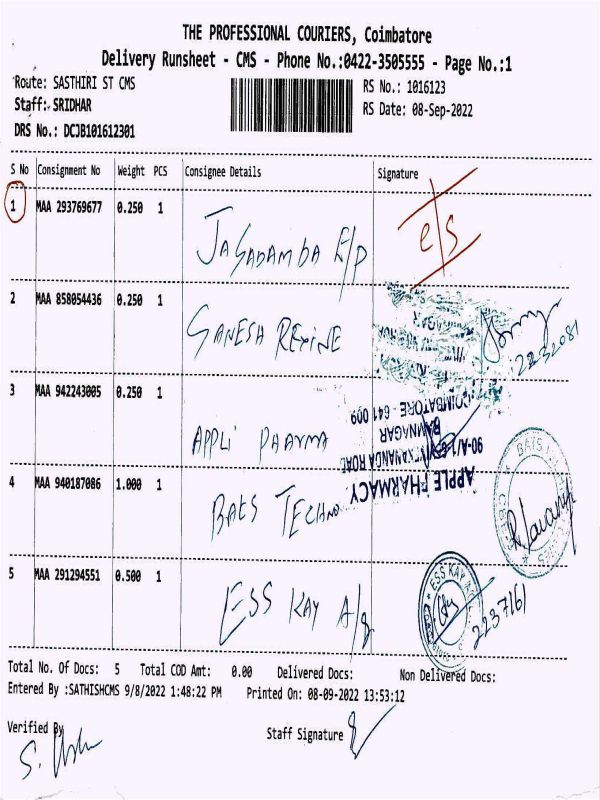 THE PROFESSIONAL COURIERS, Coimbatore
Delivery Runsheet - CMS - Phone No.:0422-3505555 - Page No.:1
Route: SASTHIRI ST CMS RS No.: 1016123
Staff: SRIDHAR RS Date: 08-Sep-2022
DRS No.: DCJB101612301
S No Consignment No Weight PCS Consignee Details Signature
1 MAA 293769677 0.250 1 JAGADAMBA E/P e/s
2 MAA 858054436 0.250 1 GANESH REXINE
3 MAA 942243005 0.250 1 APPLI PHARMA
COIMBATORE - 641 009
RAMNAGAR
APPLE PHARMACY
4 MAA 940187086 1.000 1 BATS TECHNO
5 MAA 291294551 0.500 1 ESS KAY A/g
ESS KAY
2237161
Total No. Of Docs: 5 Total COD Amt: 0.00 Delivered Docs: Non Delivered Docs:
Entered By :SATHISHCMS 9/8/2022 1:48:22 PM Printed On: 08-09-2022 13:53:12
Verified By Staff Signature